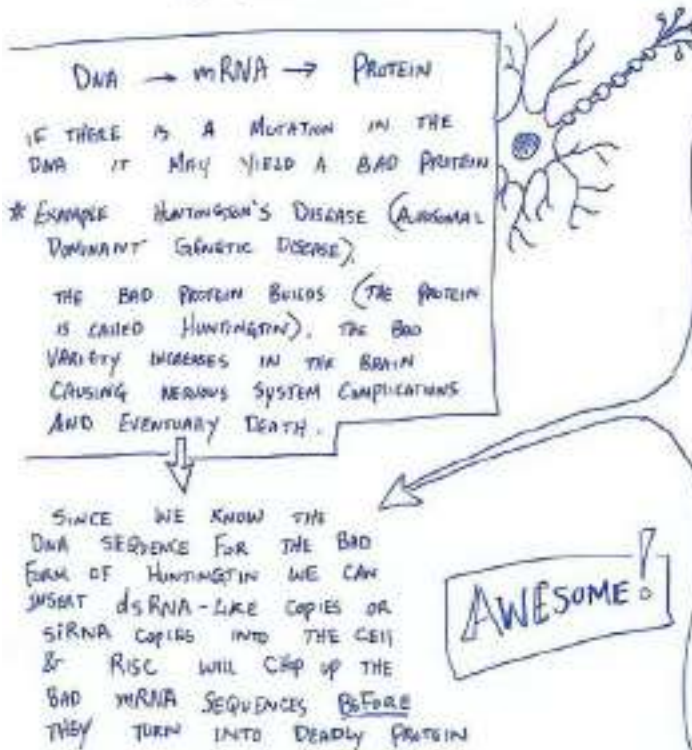 DNA → mRNA → PROTEIN
IF THERE IS A MUTATION IN THE
DNA IT MAY YIELD A BAD PROTEIN
* EXAMPLE HUNTINGTON'S DISEASE (AUTOSOMAL
DOMINANT GENETIC DISEASE).
THE BAD PROTEIN BUILDS (THE PROTEIN
IS CALLED HUNTINGTIN). THE BAD
VARIETY INCREASES IN THE BRAIN
CAUSING NERVOUS SYSTEM COMPLICATIONS
AND EVENTUALLY DEATH.
SINCE WE KNOW THE
DNA SEQUENCE FOR THE BAD
FORM OF HUNTINGTIN WE CAN
INSERT dsRNA-LIKE COPIES OR
SiRNA COPIES INTO THE CELL
& RISC WILL CHOP UP THE
BAD mRNA SEQUENCES BEFORE
THEY TURN INTO DEADLY PROTEIN
AWESOME!